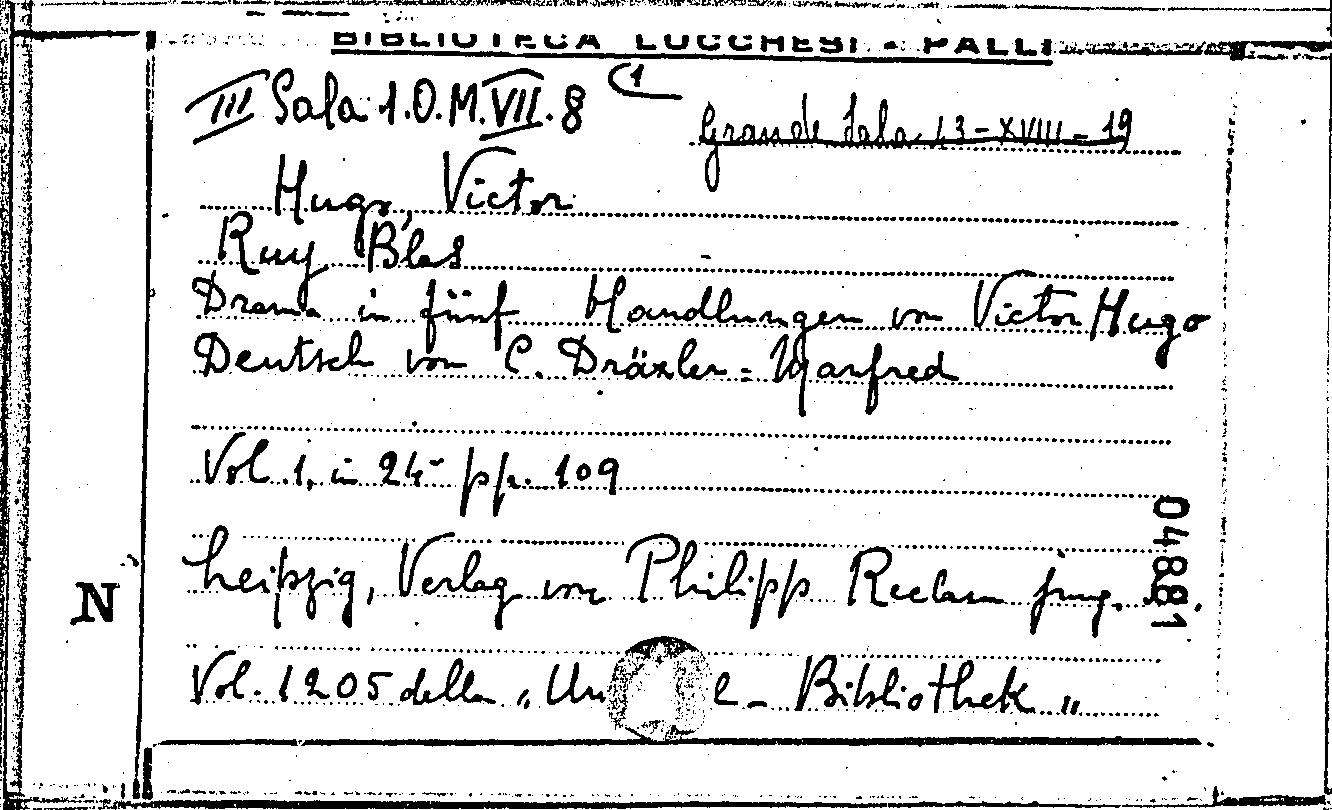 BIBLIOTECA LUCCHESI - PALLI
III Sala 1.O.M.VII.8 (1
Grande Sala 13-XVIII-19
Hugo, Victor
Ruy Blas
Drama in fünf Handlungen von Victor Hugo
Deutsch von C. Dräxler=Manfred
Vol. 1, in 24- pp. 109
Leipzig, Verlag von Philipp Reclam jung.
04881
N
Vol. 1205 della „Un e - Bibliothek „